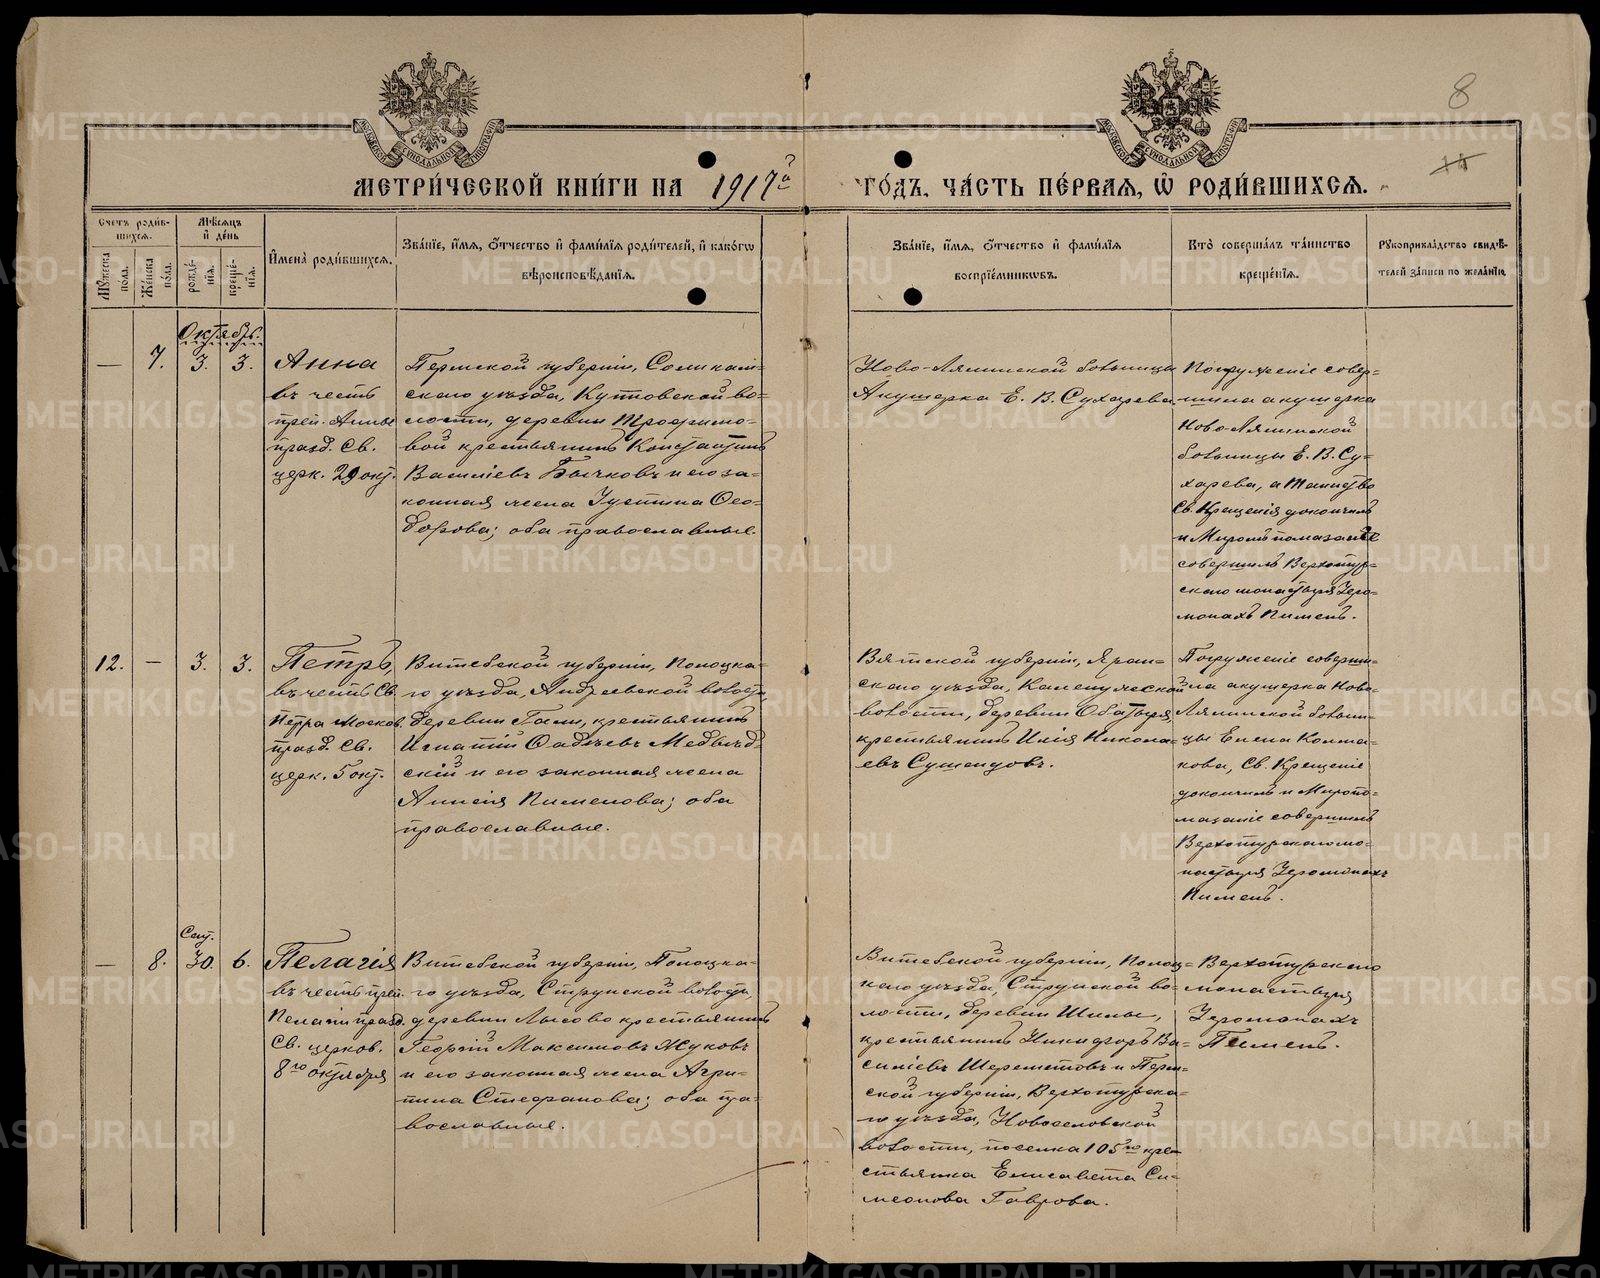 8
11
МОСКОВСКОЙ СИНОДАЛЬНОЙ ТИПОГРАФІИ
МОСКОВСКОЙ СИНОДАЛЬНОЙ ТИПОГРАФІИ
МЕТРИ́ЧЕСКОЙ КНИ́ГИ НА 1917й ГО́ДЪ, ЧА́СТЬ ПЕ́РВАЯ, Ѿ РОДИ́ВШИХСЯ.
Счетъ роди́в-
шихся.
Мѣсяцъ
и҆ де́нь
Мꙋжеска
по́ла.
Же́нска
по́ла.
рожде́-
нїя.
креще́-
нїя.
И҆мена̀ роди́вшихся.
Зва́нїе, и҆́мя, ѻ҆́тчество и҆ фами́лїя роди́телей, и҆ како́гѡ
вѣроисповѣ́данїя.
Зва́нїе, и҆́мя, ѻ҆́тчество и҆ фами́лїя
воспрїе́мникѡвъ.
Кто̀ соверша́лъ та́инство
креще́нїя.
Рꙋкоприкла́дство свидѣ́-
телей за́писи по жела́нїю.
Октябрь.
— 7. 3. 3.
Анна
въ честь
преп. Анны
празд. Св.
церк. 29 окт.
Пермской губерніи, Соликам=
скаго уѣзда, Купровской во=
лости, деревни Трофимо=
вой крестьянинъ Константинъ
Василіевъ Бычковъ и его за=
конная жена Іустина Ѳео=
дорова; оба православные.
Ново-Лялинской больницы
Акушерка Е. В. Сухарева
Погруженіе совер=
шила акушерка
Ново-Лялинской
больницы Е. В. Су=
харева, а Таинство
Св. Крещенія докончилъ
и Миропомазаніе
совершилъ Верхотур=
скаго монастыря Іеро=
монахъ Пименъ.
12. — 3. 3.
Петръ,
въ честь Св.
Петра Москов.
празд. Св.
церк. 5 окт.
Витебской губерніи, Полоцка=
го уѣзда, Андреевской волости,
деревни Гали, крестьянинъ
Игнатій Фадѣевъ Медвѣд=
скій и его законная жена
Анисія Пименова; оба
православные.
Вятской губерніи, Яран=
скаго уѣзда,
волости, деревни
крестьянинъ Илія Никола=
евъ Сушенцовъ.
Погруженіе соверши=
ла акушерка Ново=
Лялинской больни=
цы Елена Колма=
кова, Св. Крещеніе
докончилъ и Миропо=
мазаніе совершилъ
Верхотурскаго мо=
настыря Іеромонахъ
Пименъ.
Сент.
— 8. 30. 6.
Пелагія
въ честь преп.
Пелагіи празд.
Св. церков.
8го октября
Витебской губерніи, Полоцка=
го уѣзда, Струнской волости,
деревни Лысово крестьянинъ
Георгій Максимовъ Жуковъ
и его законная жена Агри=
пина Стефанова; оба пра=
вославные.
Витебской губерніи, Полоц=
каго уѣзда, Струнской во=
лости, деревни Шилы,
крестьянинъ Никифоръ Ва=
силіевъ Шереметовъ и Перм=
ской губерніи, Верхотурска=
го уѣзда, Новоселовской
волости, поселка 105го кре=
стьянка Елисавета Си=
меонова Гаврова.
Верхотурскаго
монастыря
Іеромонахъ
Пименъ.
METRIKI.GASO-URAL.RU